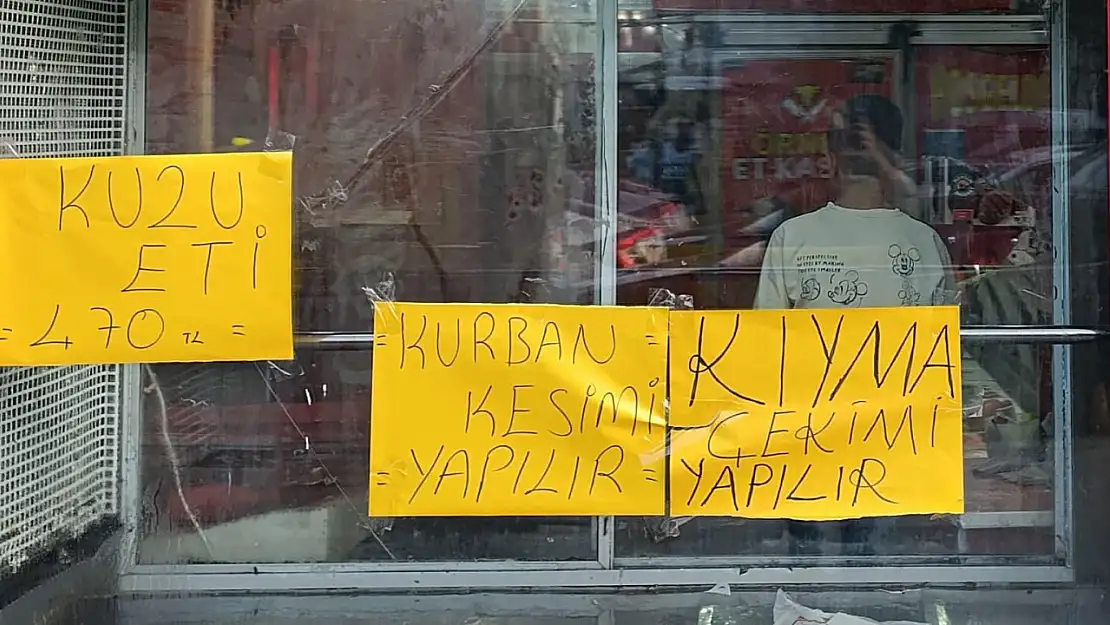 KUZU
ETİ
= 470 TL =
= KURBAN =
KESİMİ
= YAPILIR =
KIYMA
ÇEKİMİ
YAPILIR
ET KAS